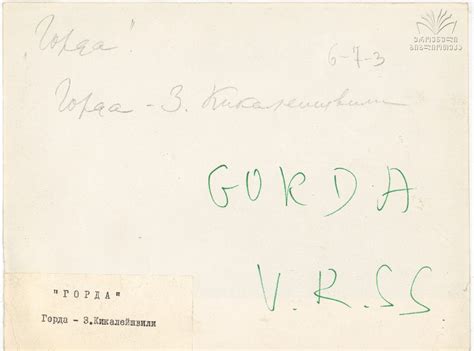 "Горда".
ეროვნული
ბიბლიოთეკა
6-7-3
Горда - З. Кикалейшвили
GORDA
V.R.SS
"ГОРДА"
Горда - З.Кикалейшвили